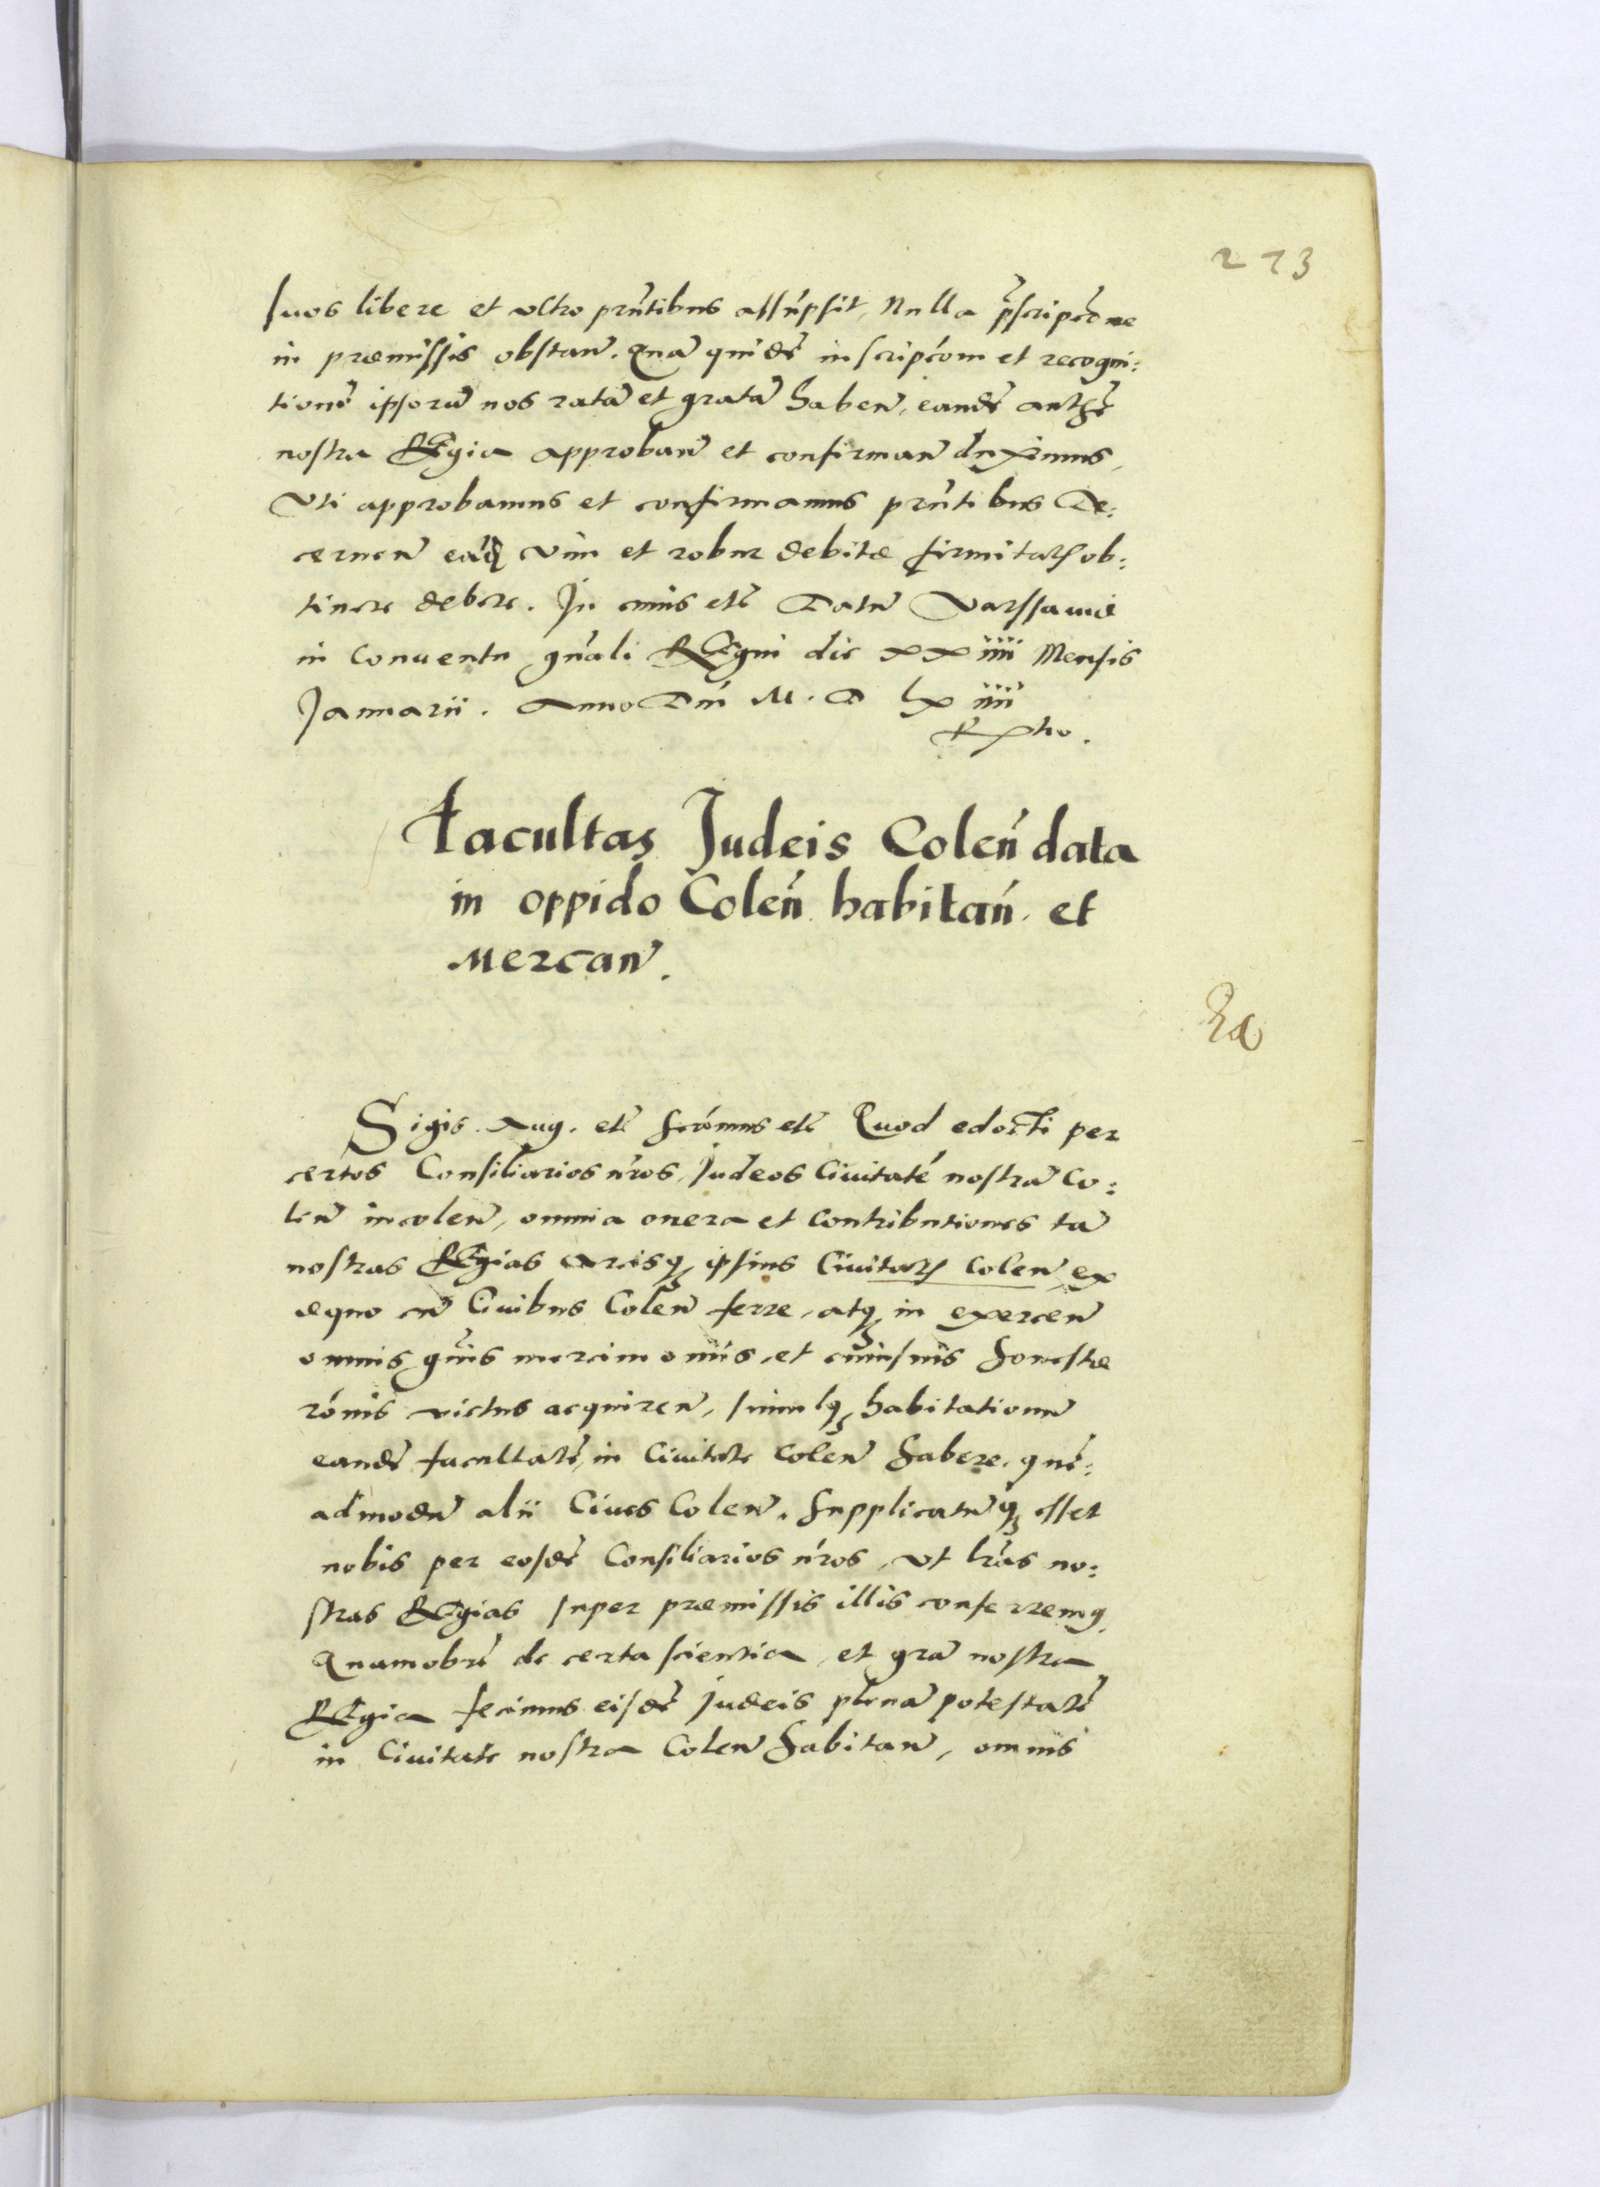 273
suos libere et ultro pñtibus assũpsit, Nulla p̃scripcõne
in præmissis obstan̄. Quã quidẽ inscripcõem et recogni:
tionẽ ipsorũ nos ratã et gratã haben̄, eandẽ aucthẽ
nostra Regia approban̄ et confirman̄ duximus,
Vti approbamus et confirmamus pñtibus De:
cernen̄ eãq3 vim et robur debitæ firmitatis ob:
tinere debere. In cuius etc̃ Datũ Varssauiæ
in Conuentu gñali Regni die xxiiii Mensis
Januarii. Anno Dñi M. D lxiiii
Rptio.
Facultas Judeis Coleñ data
in oppido Coleñ habitañ. et
Mercan̄.
Ra
Sigis. Aug. etc̃ Scõimus etc̃ Quod edocti per
certos Consiliarios ñros, Judeos Ciuitatẽ nostrã Co:
len̄ incolen̄, omnia onera et Contributiones tã
nostras Regias arcisq3 ipsius Ciuitatis Colen̄ ex
æquo cũ Ciuibus Colen̄ ferre, atq3 in exercen̄
omnis gñis mercimoniis, et cuiusuis honestæ
rõnis victus acquiren̄, simulq3 habitationũ
eandẽ facultatẽ, in Ciuitate Colen̄ habere, quẽ:
admodũ alii Ciues Colen̄. Supplicatũq3 esset
nobis per eosdẽ Consiliarios ñros, vt lr̃as no:
stras Regias super præmissis illis conferremq
Quamobrẽ de certa scientia, et grã nostra
Regia fecimus eisdẽ Judeis plenã potestatẽ
in Ciuitate nostra Colen̄ habitan̄, omnis